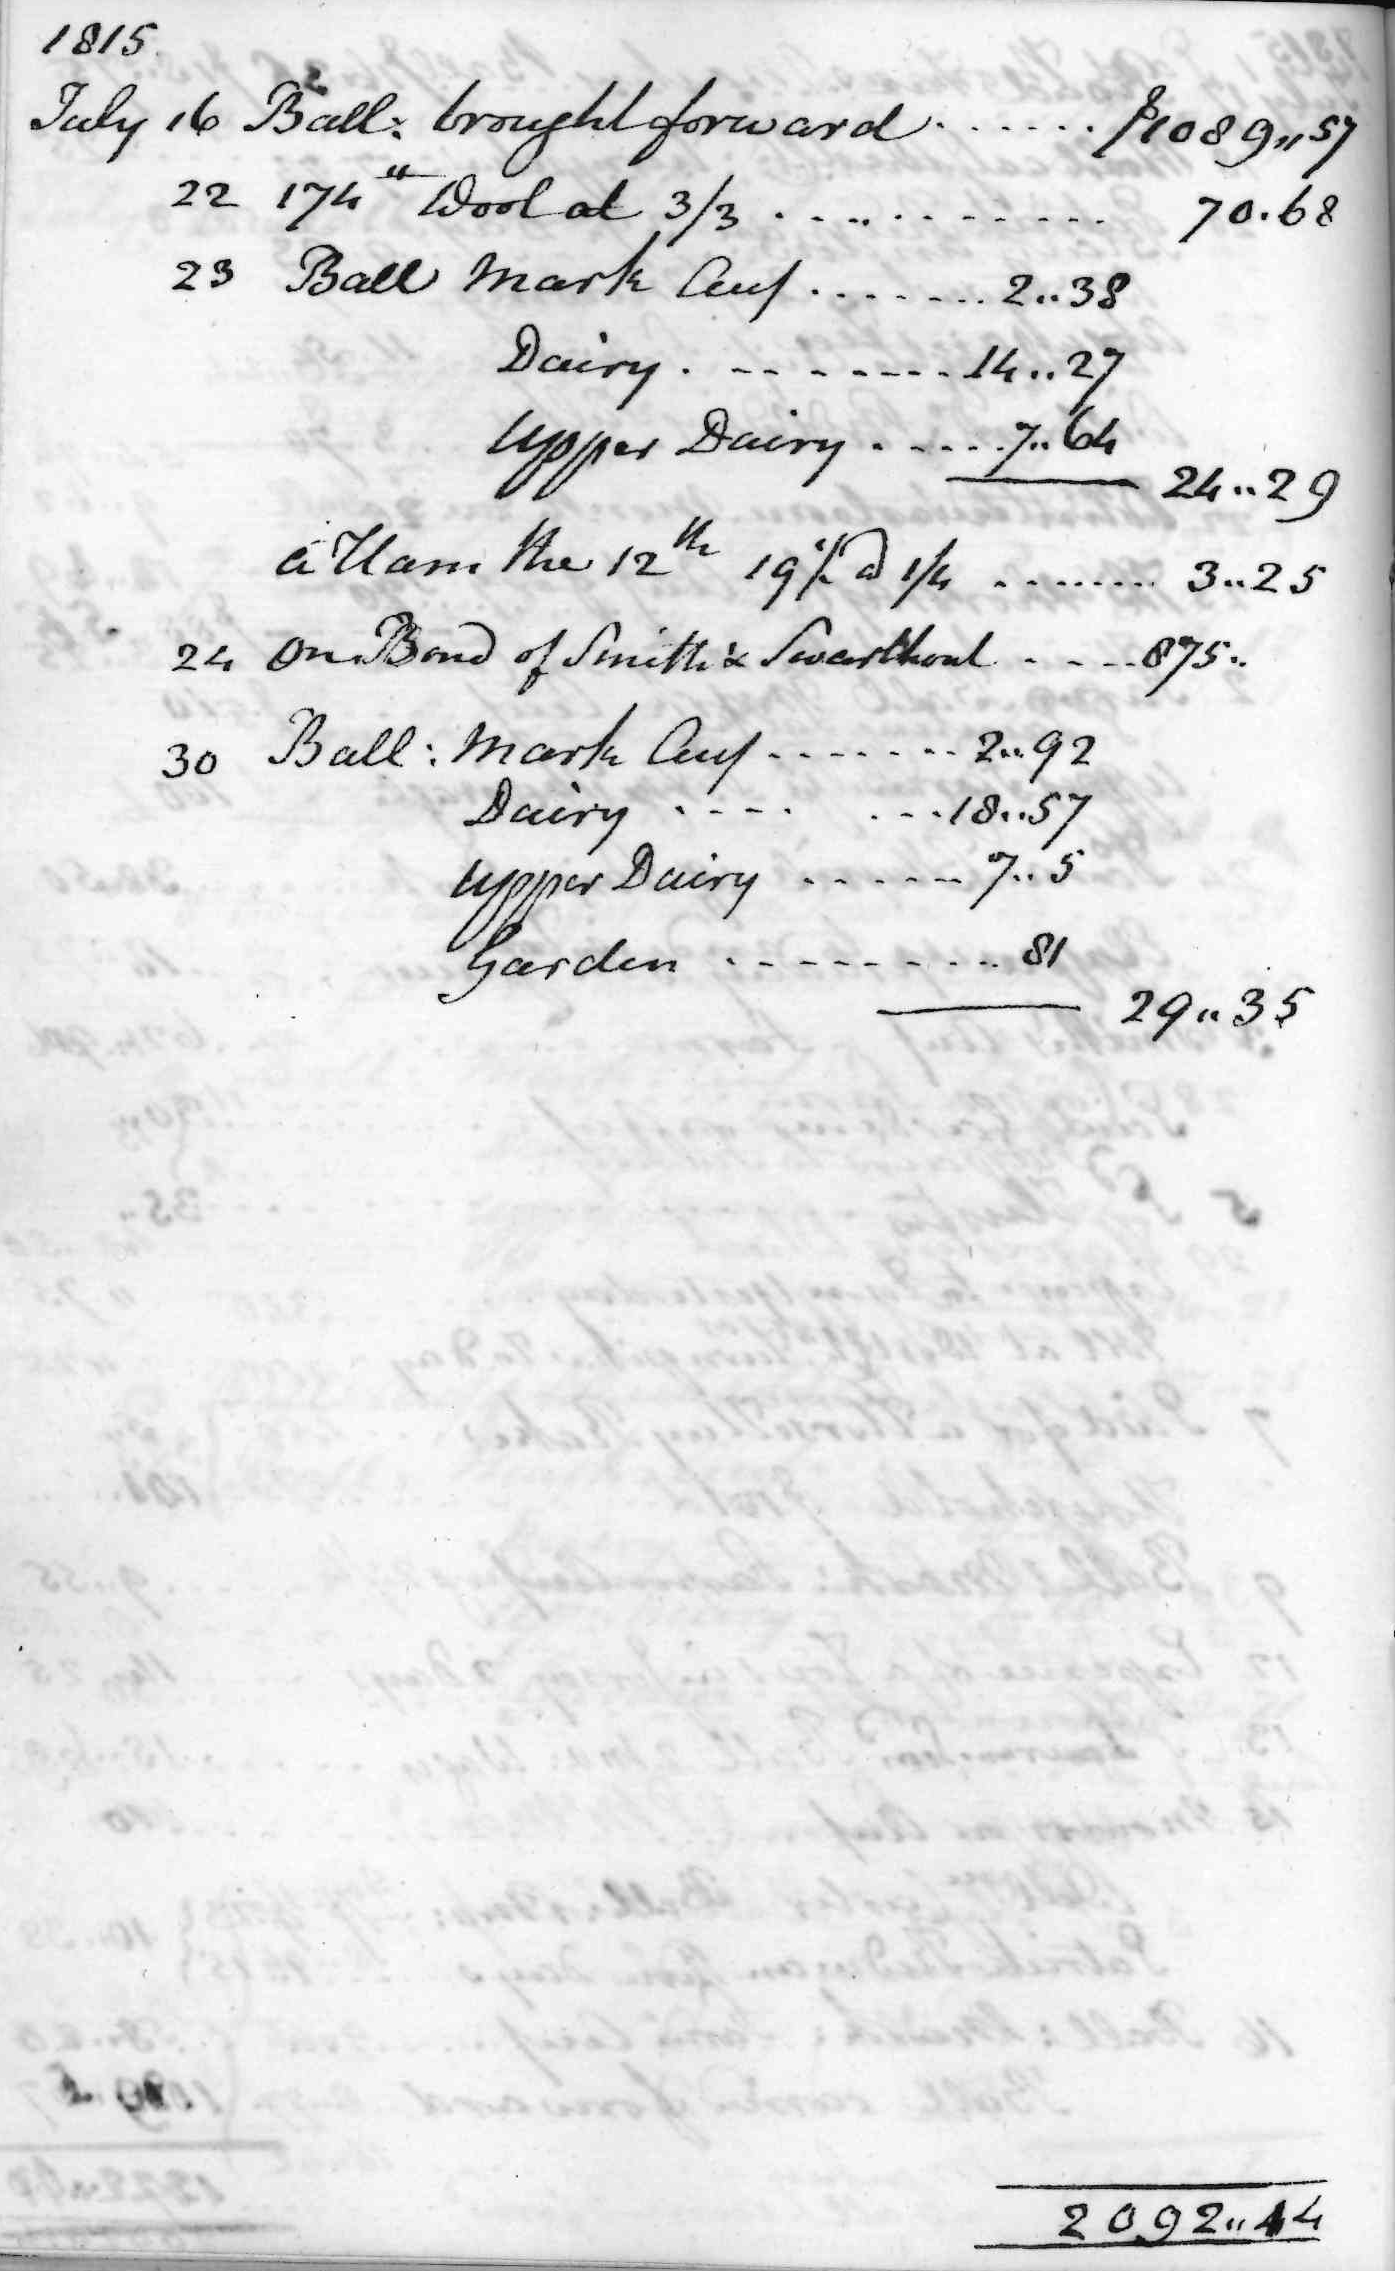 1815
July 16 Ball: brought forward . . . . . . $1089,,57
22 174 lb Wool at 3/3 . . . . . . . . . . . 70.68
23 Ball Mark Cuf . . . . . . . 2..38
Dairy . . . . . . . . . 14..27
Upper Dairy . . . . . 7..64
24..29
a Ham the 12th 19 lb @ 1/4 . . . . . . . 3..25
24 On Bond of Smith & Swarthout . . . . 875..
30 Ball: Mark Cuf . . . . . . . 2..92
Dairy . . . . . . . 18..57
Upper Dairy . . . . . . 7..5
Garden . . . . . . . . . 81
29..35
2092,,44